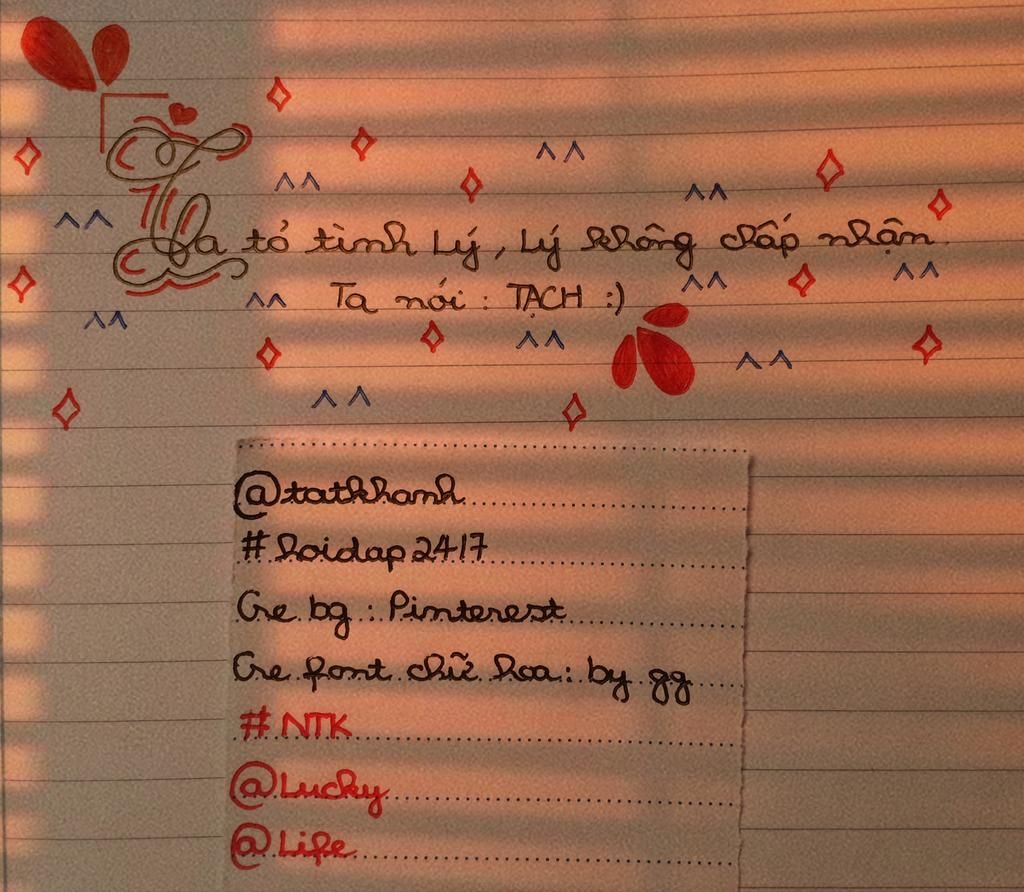 Ta tỏ tình Lý, Lý không chấp nhận.
Ta nói : TẠCH :)
@tatkhanh
#hoidap24/7
Cre bg : Pinterest
Cre font chữ hoa : by gg
# NTK
@Lucky
@Life